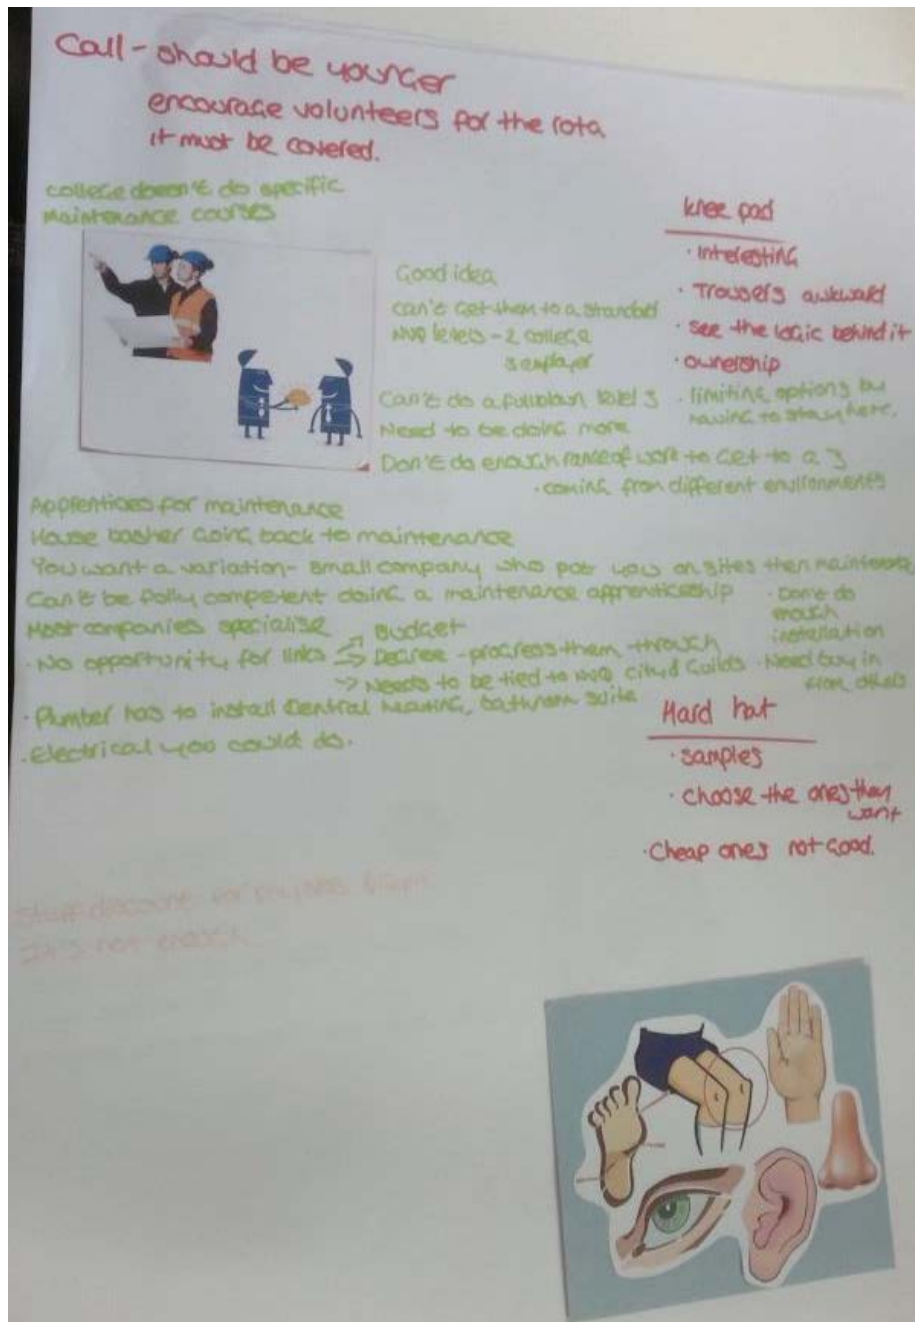 Call - should be younger
encourage volunteers for the rota
it must be covered.
college doesn't do specific
maintenance courses
Good idea
can't get them to a standard
NVQ levels - 2 college
3 employer
Can't do a full level 3
Need to be doing more
Don't do enough range of work to get to a 3
· coming from different environments
knee pad
· interesting
· Trousers awkward
· see the logic behind it
· ownership
· limiting options by
having to stay here.
Apprentices for maintenance
House basher going back to maintenance
You want a variation - small company who put you on sites then maintenance
Can't be fully competent doing a maintenance apprenticeship
· Don't do
enough
installation
Most companies specialise
· No opportunity for links
Budget
Degree - progress them through
Needs to be tied to NVQ City & Guilds
· Need buy in
from others
· Plumber has to install Central heating, bathroom suite
· Electrical you could do.
Hard hat
· samples
· choose the ones they
want
· Cheap ones not good.
Staff discount for
not enough